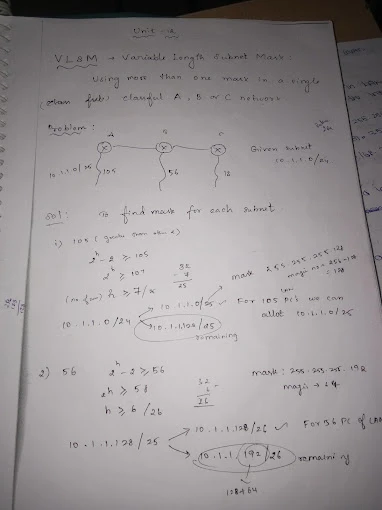 Unit - 4
VLSM → Variable Length Subnet Mask :
Using more than one mask in a single
classful A, B or C network
Problem :
A
10.1.1.0/25 105 56
Given subnet
10.1.1.0/24
Sol : To find mask for each subnet
i) 105
2^h - 2 ≥ 105
2^h ≥ 107
h ≥ 7
32
- 7
25
mask 255.255.255.128
10.1.1.0/24
10.1.1.0/25 ✓ For 105 PC's we can
allot 10.1.1.0/25
10.1.1.128/25
remaining
2) 56 2^h - 2 ≥ 56
2^h ≥ 58
h ≥ 6 / 26
32
6
26
mask : 255.255.255.192
magic → 64
10.1.1.128/25
10.1.1.128/26 ✓ For 56 PC of LAN
10.1.1.192/26 remaining
128+64